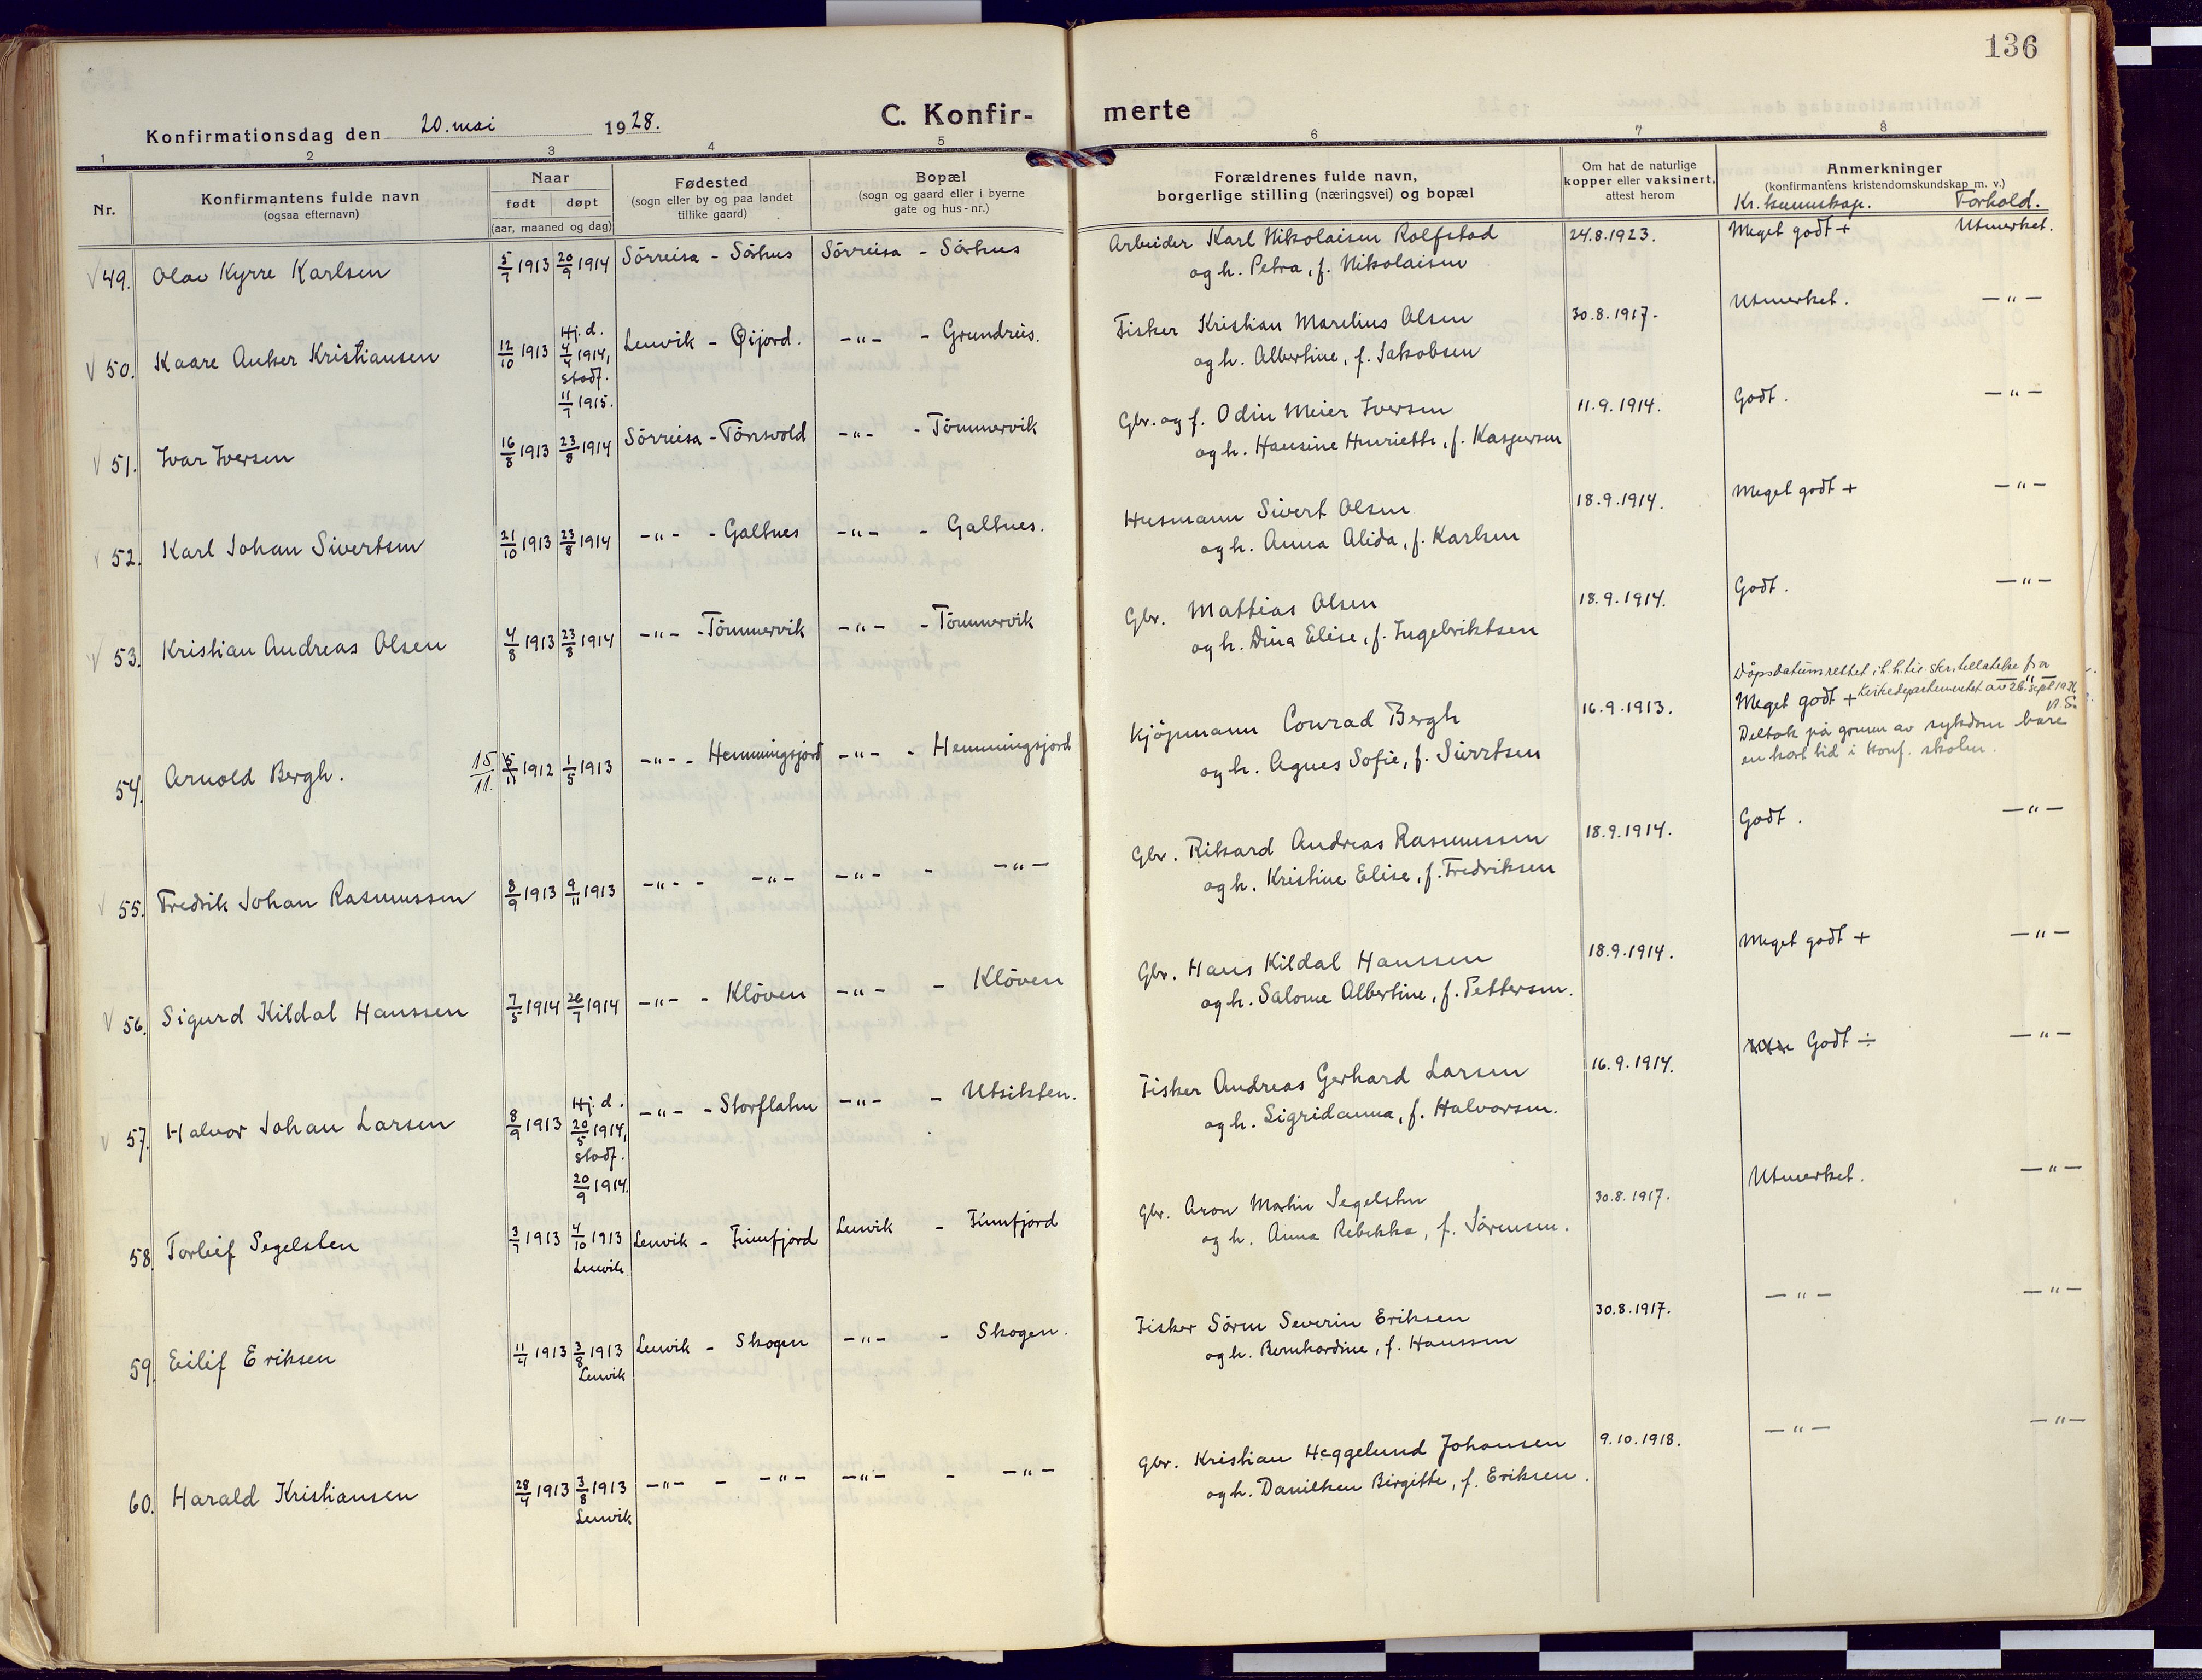 136
C. Konfirmerte
Konfirmationsdag den 20. mai 1928.
1 2 3 4 5 6 7 8
Nr.
Konfirmantens fulde navn
(ogsaa efternavn)
Naar
født døpt
(aar, maaned og dag)
Fødested
(sogn eller by og paa landet
tillike gaard)
Bopæl
(sogn og gaard eller i byerne
gate og hus-nr.)
Forældrenes fulde navn,
borgerlige stilling (næringsvei) og bopæl
Om hat de naturlige
kopper eller vaksinert,
attest herom
Anmerkninger
(konfirmantens kristendomskundskap m. v.)
Kr. kunnskap. Forhold.
49. Olav Kyrre Karlsen 5/7 1913 20/9 1914 Sörreisa - Sörhus Sörreisa - Sörhus Arbeider Karl Nikolaisen Rolfstad 24.8.1923. Meget godt + Utmerket.
og h. Petra, f. Nikolaisen
50. Kaare Anker Kristiansen 12/10 1913 Hj. d. Lenvik - Gijord. -"- - Grundreis. Fisker Kristian Marelius Olsen 30.8.1917. Utmerket. -"-
4/4 1914, og h. Albertine, f. Jakobsen
stadf.
11/7 1915.
51. Ivar Iversen 16/8 1913 23/8 1914 Sörreisa - Tönsvold -"- - Tömmervik Gbr. og f. Odin Meier Iversen 11.9.1914. Godt. -"-
og h. Hansine Henriette, f. Kaspersen
52. Karl Johan Sivertsen 21/10 1913 23/8 1914 -"- - Galtnes -"- - Galtnes. Husmann Sivert Olsen 18.9.1914. Meget godt + -"-
og h. Anna Alida, f. Karlsen
53. Kristian Andreas Olsen 4/8 1913 23/8 1914 -"- - Tömmervik -"- - Tömmervik Gbr. Mattias Olsen 18.9.1914. Godt. -"-
og h. Dina Elise, f. Ingebriktsen
Dåpsdatum rettet i h.h. til skr. tillatelse fra
Kirkedepartementet av 26. sept 19
54. Arnold Bergh. 15/11. 5/11 1912 1/5 1913 -"- - Hemmingsjord -"- - Hemmingsjord Kjöpmann Conrad Bergh 16.9.1913. Meget godt + -"-
og h. Agnes Sofie, f. Sivertsen
Deltok på grunn av sykdom bare
en kort tid i konf. skolen.
55. Fredrik Johan Rasmussen 8/9 1913 9/11 1913 -"- - -"- -"- - -"- Gbr. Rikard Andreas Rasmussen 18.9.1914. Godt. -"-
og h. Kristine Elise, f. Fredriksen
56. Sigurd Kildal Hanssen 7/5 1914 26/7 1914 -"- - Klöven -"- - Klöven Gbr. Hans Kildal Hanssen 18.9.1914. Meget godt + -"-
og h. Salome Albertine, f. Pettersen.
57. Halvor Johan Larsen 8/9 1913 Hj. d. -"- - Storflaten -"- - Utsikten. Fisker Andreas Gerhard Larsen 16.9.1914. Godt ÷ -"-
20/5 1914, og h. Sigridanna, f. Halvorsen.
stadf.
20/9 1914.
58. Torleif Segelsten 3/7 1913 4/10 1913 Lenvik - Finnfjord Lenvik - Finnfjord Gbr. Aron Martin Segelsten 30.8.1917. Utmerket. -"-
Lenvik og h. Anna Rebekka, f. Sörensen.
59. Eilif Eriksen 11/4 1913 3/8 1913 Lenvik - Skogen -"- - Skogen. Fisker Sören Severin Eriksen 30.8.1917. -"- -"-
Lenvik og h. Bernhardine, f. Hanssen
60. Harald Kristiansen 28/4 1913 3/8 1913 -"- - -"- -"- - -"- Gbr. Kristian Heggelund Johansen 9.10.1918. -"- -"-
Lenvik og h. Danilken Birgitte, f. Eriksen.